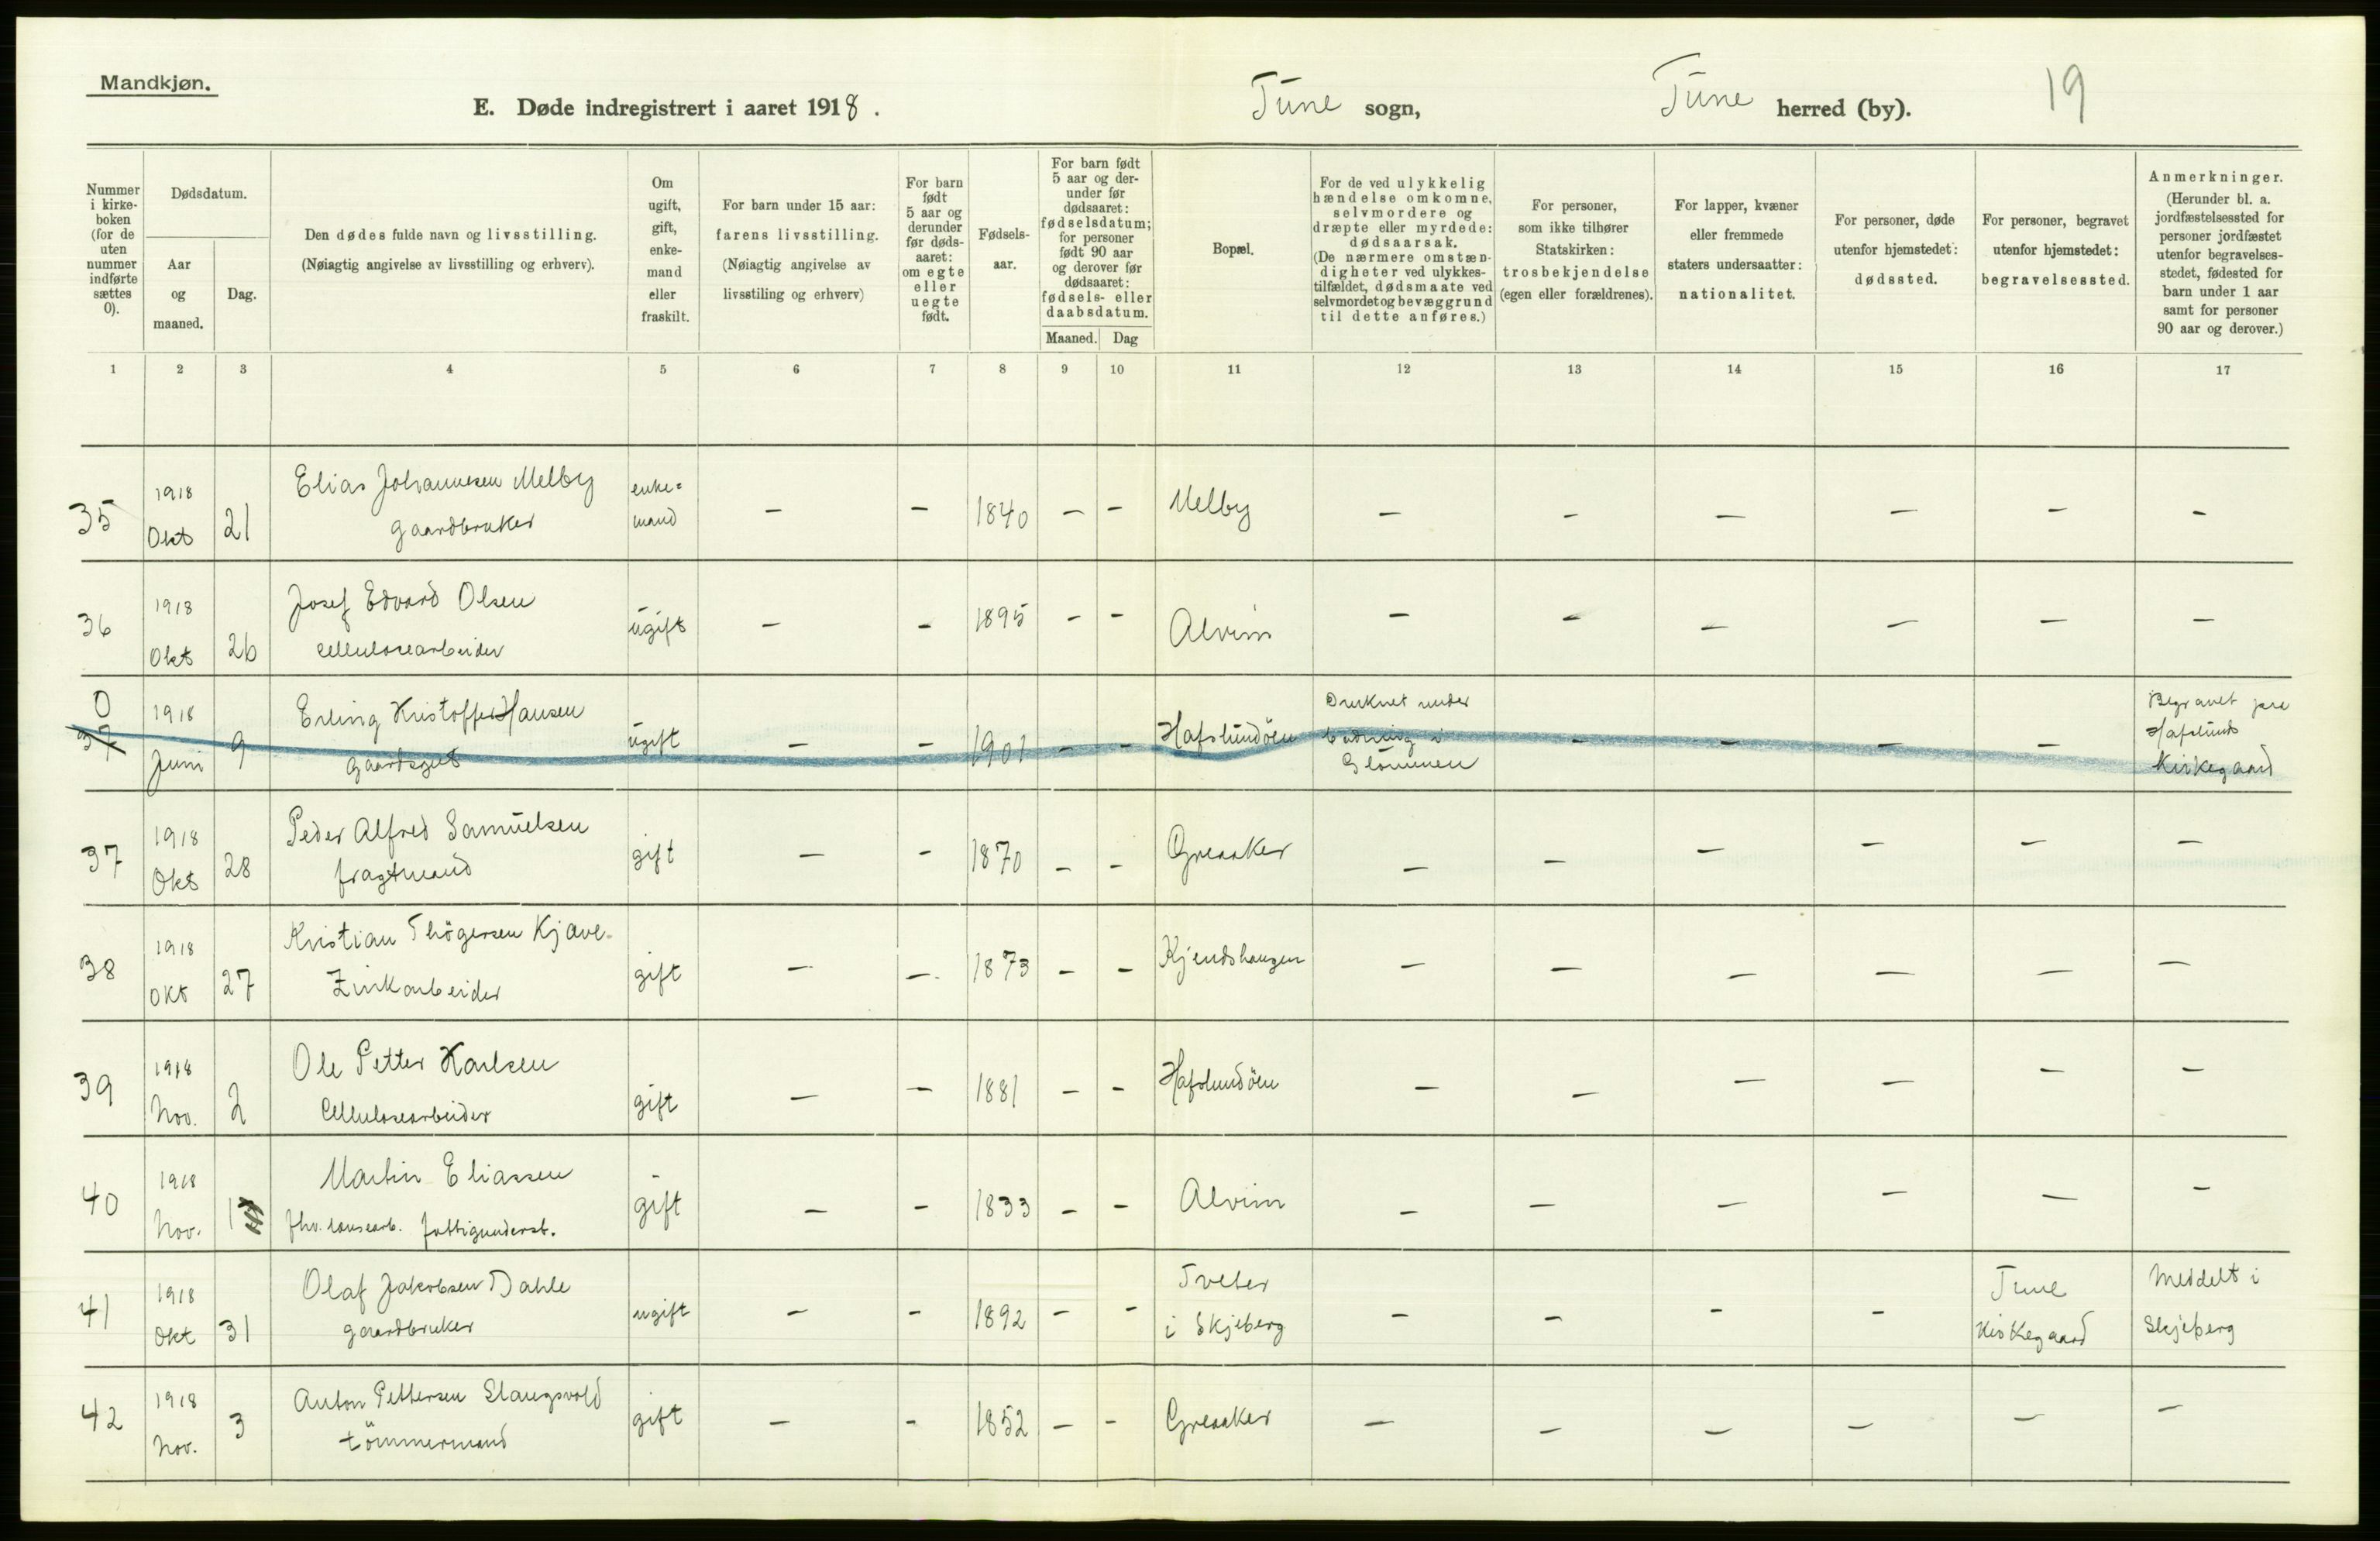 Mandkjøn.
E. Døde indregistrert i aaret 1918. Tune sogn, Tune herred (by). 19
Nummer i kirke- boken (for de uten nummer indførte sættes 0).
Dødsdatum.
Aar og maaned.
Dag.
Den dødes fulde navn og livsstilling.
(Nøiagtig angivelse av livsstilling og erhverv).
Om ugift, gift, enke- mand eller fraskilt.
For barn under 15 aar:
farens livsstilling.
(Nøiagtig angivelse av
livsstiling og erhverv)
For barn født 5 aar og derunder før døds- aaret: om egte eller uegte født.
Fødsels- aar.
For barn født 5 aar og der- under før dødsaaret: fødselsdatum; for personer født 90 aar og derover før dødsaaret: fødsels- eller daabsdatum.
Maaned. Dag
Bopæl.
For de ved ulykkelig hændelse omkomne, selvmordere og dræpte eller myrdede: dødsaarsak. (De nærmere omstæn- digheter ved ulykkes- tilfældet, dødsmaate ved selvmordet og bevæggrund til dette anføres.)
For personer, som ikke tilhører Statskirken: trosbekjendelse (egen eller forældrenes).
For lapper, kvæner eller fremmede staters undersaatter: nationalitet.
For personer, døde utenfor hjemstedet: dødssted.
For personer, begravet utenfor hjemstedet: begravelsessted.
Anmerkninger. (Herunder bl. a. jordfæstelsessted for personer jordfæstet utenfor begravelses- stedet, fødested for barn under 1 aar samt for personer 90 aar og derover.)
1 2 3 4 5 6 7 8 9 10 11 12 13 14 15 16 17
35 1918 Okt 21 Elias Johannesen Melby enke= mand – – 1840 – – Melby – – – – – –
gaardbruker
36 1918 Okt 26 Josef Edvard Olsen ugift – – 1895 – – Alvim – – – – – –
cellulosearbeider
0 37 1918 Juni 9 Erling Kristoffer Hansen ugift – – 1901 – – Hafslundöen Druknet under badning i Glommen – – – – Begravet paa Hafslund Kirkegaard
gaardsgut
37 1918 Okt 28 Peder Alfred Samuelsen gift – – 1870 – – Greaaker – – – – – –
fragtmand
38 1918 Okt 27 Kristian Thögersen Kjave. gift – – 1873 – – Kjendshaugen – – – – – –
Zinkarbeider
39 1918 Nov. 2 Ole Petter Karlsen gift – – 1881 – – Hafslundöen – – – – – –
Cellulosearbeider
40 1918 Nov. 1 Martin Eliassen gift – – 1833 – – Alvim – – – – – –
fhv. fattigunderst.
41 1918 Okt 31 Olaf Jakobsen Dahle ugift – – 1892 – – Tveter i Skjeberg – – – – Tune Kirkegaard Meddelt i Skjeberg
gaardbruker
42 1918 Nov. 3 Anton Pettersen Slangsvold gift – – 1852 – – Greaaker – – – – – –
tömmermand